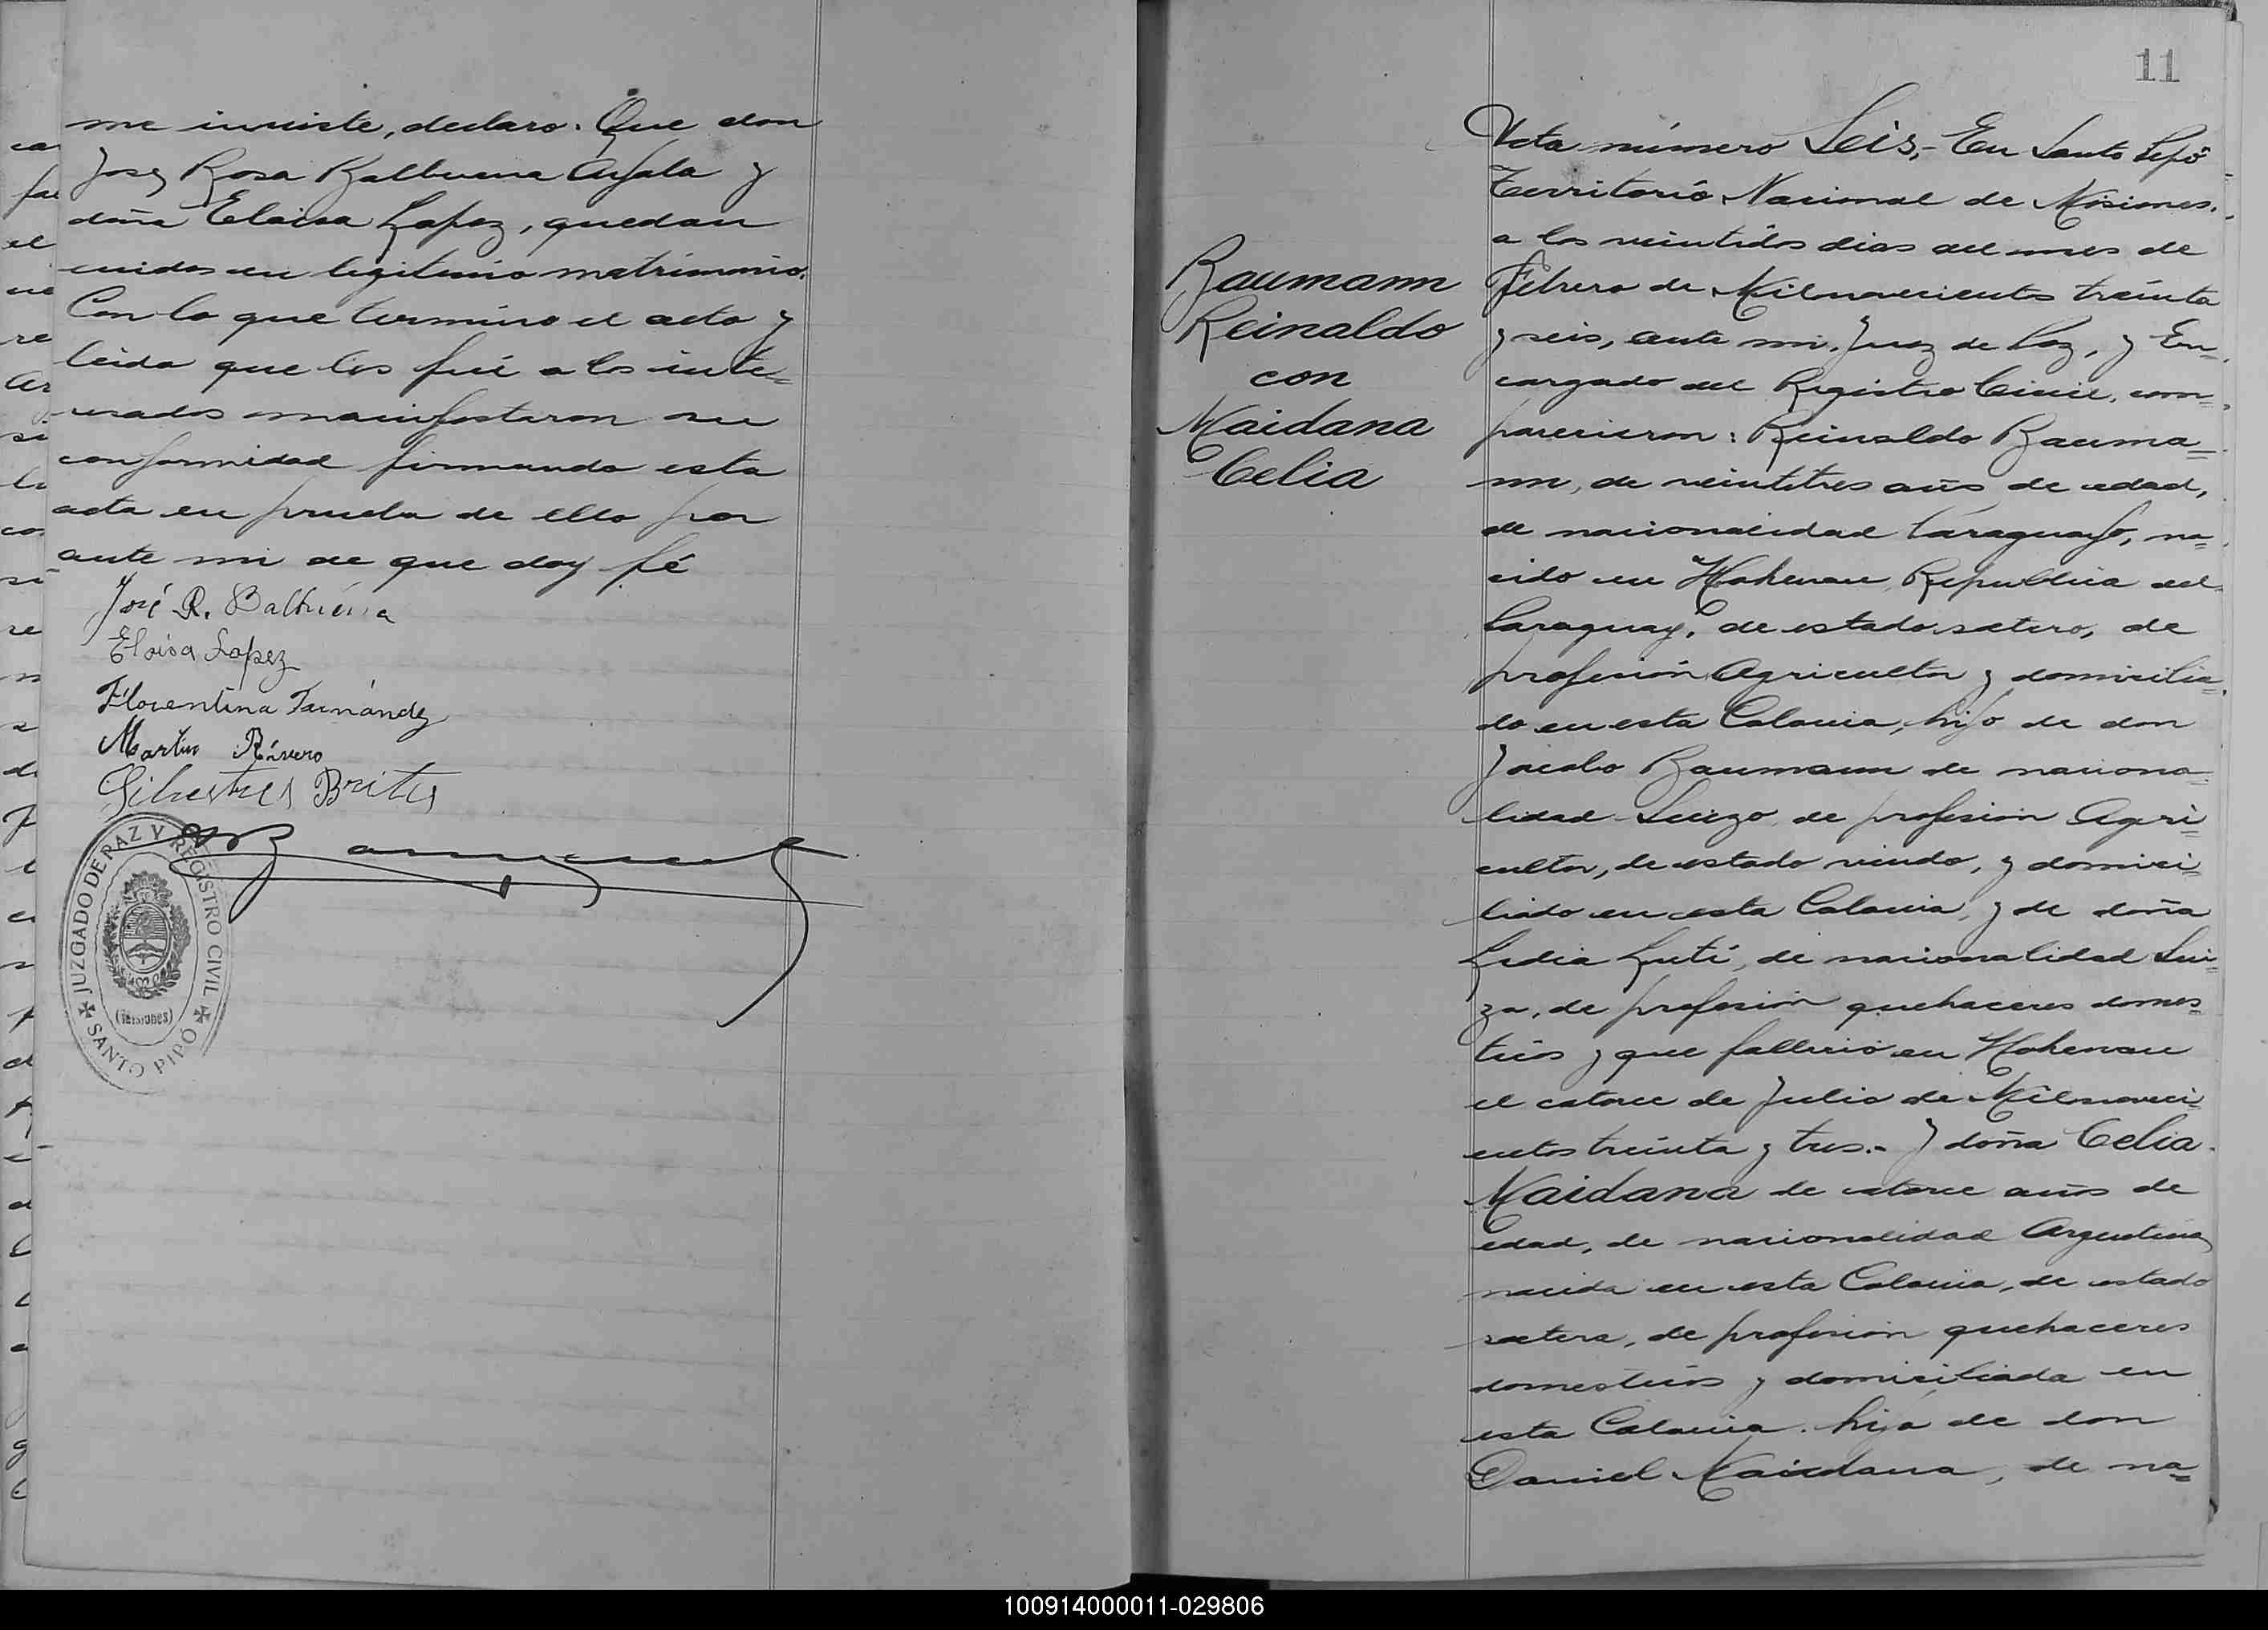 me inviste, declaro: Que don
José Rosa Balbuena Ayala y
doña Eloisa Lopez, quedan
unidos en legitimo matrimonio.
Con lo que termino el acto y
leida que les fué a los inte=
resados manifestaron su
conformidad firmando esta
acta en prueba de ello por
ante mi de que doy fé
José R. Balbuena
Eloisa Lopez
Florentina Fernández
Martin Rivero
Silvestres Brites
JUZGADO DE PAZ Y REGISTRO CIVIL
(Misiones)
SANTO PIPÓ
11
Baumann
Reinaldo
con
Maidana
Celia
Acta número Seis,- En Santo Pipó
Territorio Nacional de Misiones.
a los veintidos dias del mes de
Febrero de Milnovecientos treinta
y seis, ante mi, Juez de Paz, y En-
cargado del Registro Civil, com=
parecieron: Reinaldo Bauma=
nn, de veintitres años de edad,
de nacionalidad Paraguayo, na-
cido en Hohenau, Republica del
Paraguay, de estado soltero, de
profesión Agricultor y domicilia-
do en esta Colonia, hijo de don
Jacobo Baumann de naciona-
lidad Suizo, de profesión Agri=
cultor, de estado viudo, y domici=
liado en esta Colonia, y de doña
Lidia Luti, de nacionalidad Sui=
za, de profesión quehaceres domes=
ticos y que falleció en Hohenau
el catorce de Julio de Milnoveci=
entos treinta y tres.- Y doña Celia
Maidana de catorce años de
edad, de nacionalidad Argentina
nacida en esta Colonia, de estado
soltera, de profesión quehaceres
domesticos y domiciliada en
esta Colonia. hija de don
Daniel Maidana, de na=
100914000011-029806